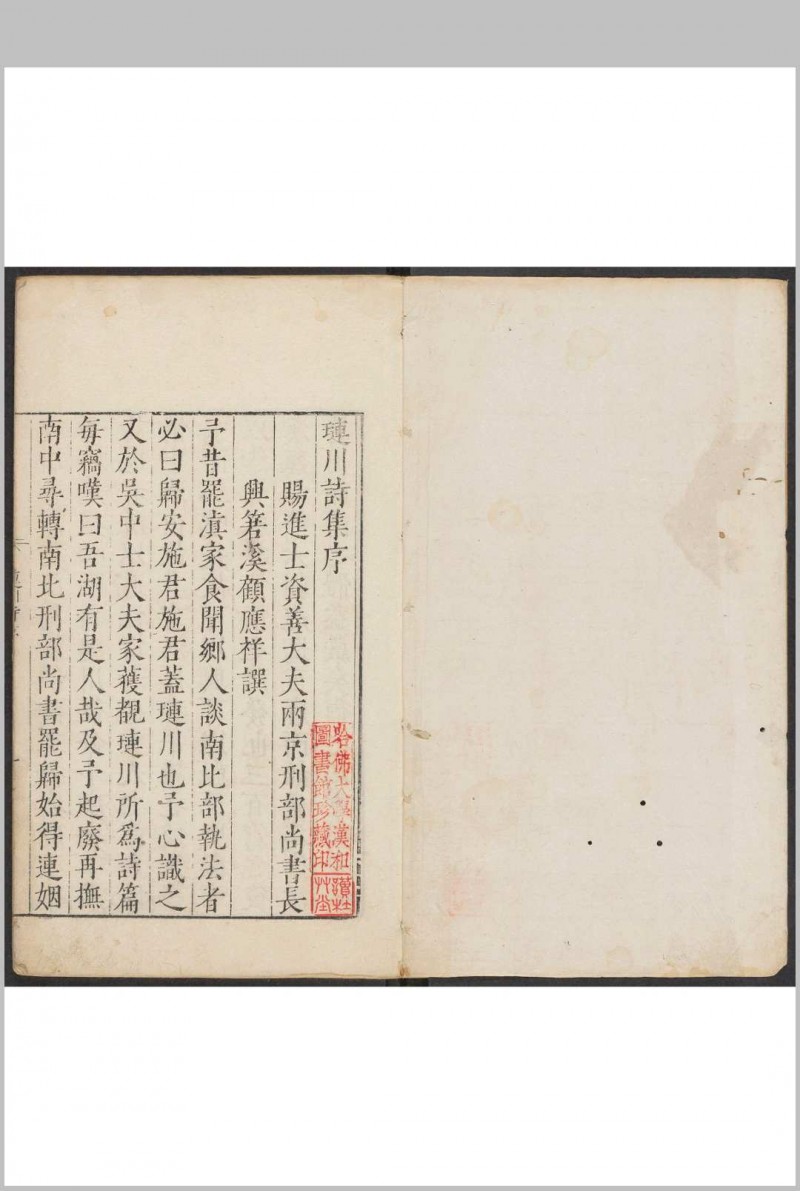 璉川詩集序
賜進士資善大夫兩京刑部尚書長
興箬溪顧應祥譔
予昔罷滇家食聞鄉人談南比部執法者
必曰歸安施君施君蓋璉川也予心識之
又於吳中士大夫家獲覩璉川所爲詩篇
每竊嘆曰吾湖有是人哉及予起廢再撫
南中尋轉南北刑部尚書罷歸始得連姻
哈佛大學漢和
圖書館珍藏印
讀杜
艸堂